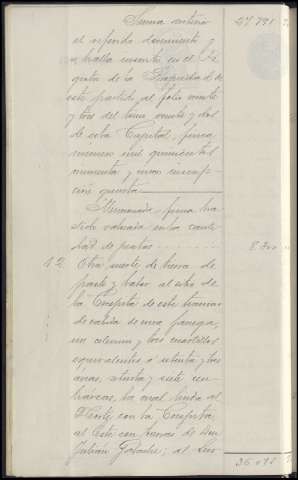 Suma anterior 27.791
el referido documento y
se halla inscrito en el Re
gistro de la Propiedad de
este partido al folio veinte
y tres del tomo veinte y dos
de esta Capital, finca
número mil quinientos
noventa y nueve inscrip-
ción quinta.
Mencionada finca ha
sido valorada en la canti
dad de pesetas 8.300
12 Otra suerte de tierra de
parte y batar al sitio de
la Cocepeta de este término
de cabida de una fanega,
un celemín y tres cuartillos
equivalentes a setenta y tres
areas, setenta y siete cen-
tiáreas, la cual linda al
Norte con la
al Este con tierras de Don
Julián; al Sur
36.091